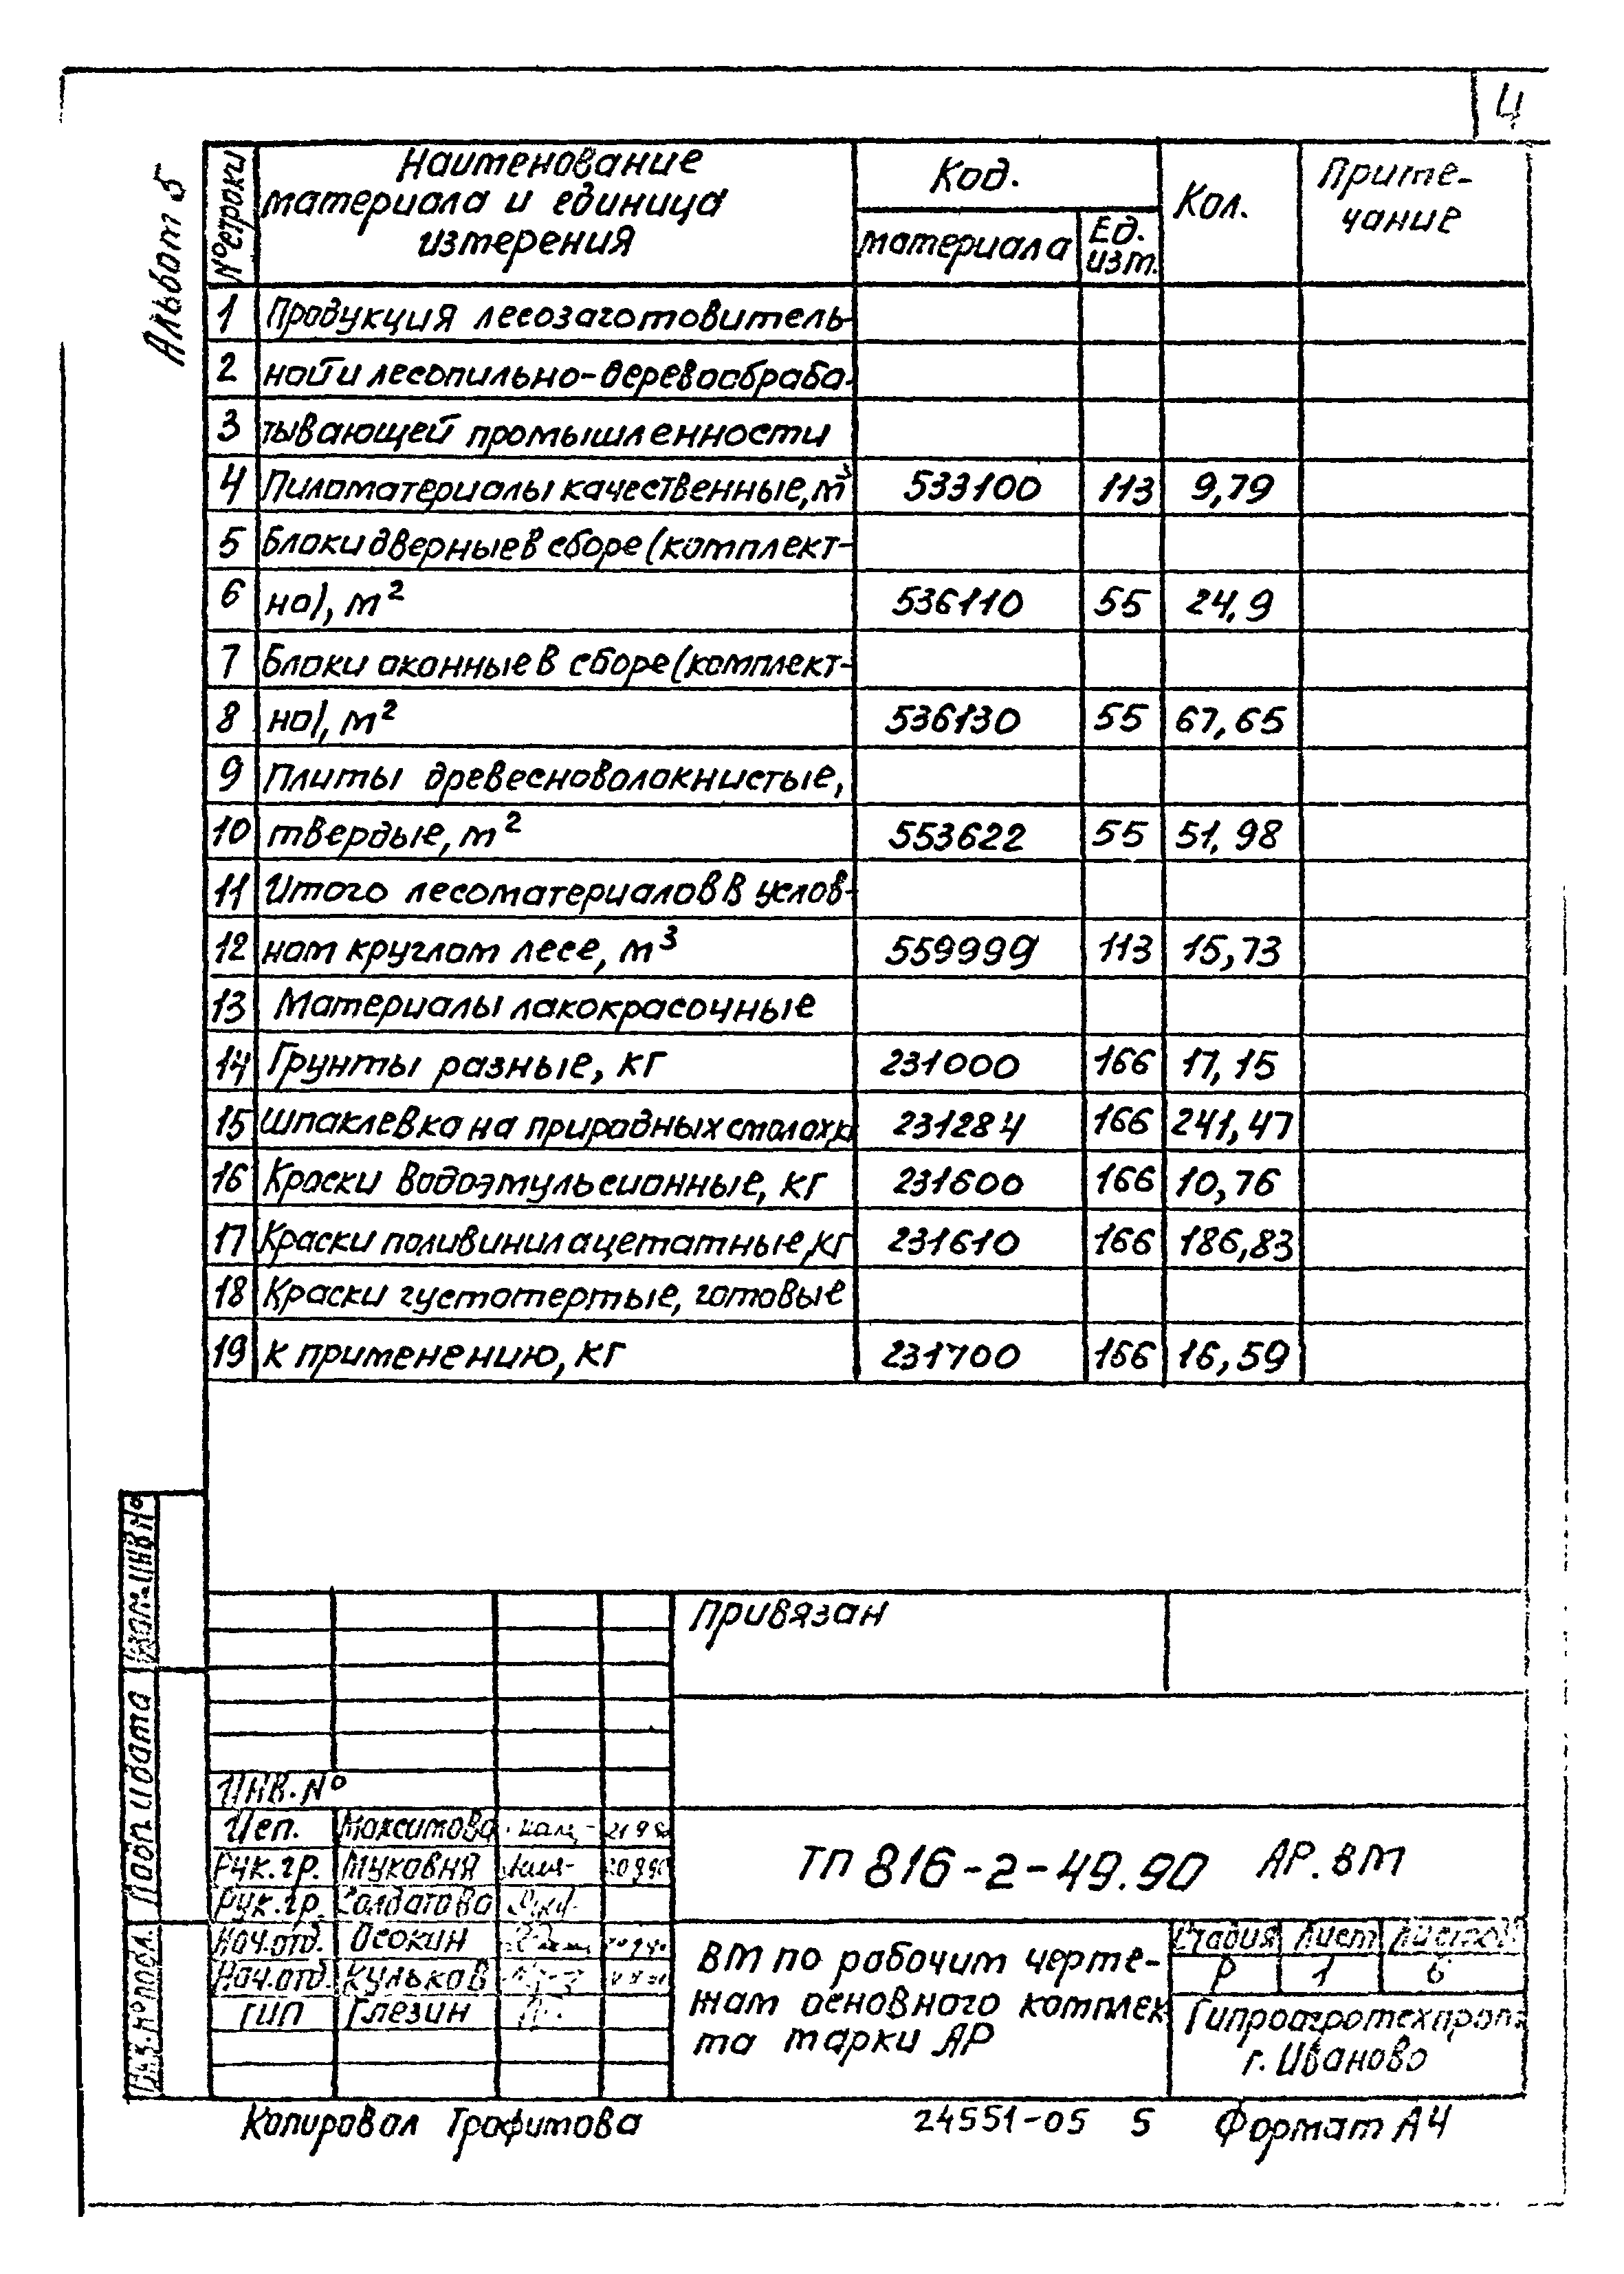 4
Альбом 5
№ строки
Наименование
материала и единица
измерения
Код.
материала
Ед.
изм.
Кол.
Приме-
чание
1 Продукция лесозаготовитель-
2 ной и лесопильно-деревообраба-
3 тывающей промышленности
4 Пиломатериалы качественные, м³ 533100 113 9,79
5 Блоки дверные в сборе (комплект-
6 но), м² 536110 55 24,9
7 Блоки оконные в сборе (комплект-
8 но), м² 536130 55 67,65
9 Плиты древесноволокнистые,
10 твердые, м² 553622 55 51,98
11 Итого лесоматериалов в услов-
12 ном круглом лесе, м³ 559999 113 15,73
13 Материалы лакокрасочные
14 Грунты разные, кг 231000 166 17,15
15 Шпаклевка на природных смолах, кг 231284 166 241,47
16 Краски водоэмульсионные, кг 231600 166 10,76
17 Краски поливинилацетатные, кг 231610 166 186,83
18 Краски густотертые, готовые
19 к применению, кг 231700 166 16,59
Взам. инв №
Подп. и дата
Инв. № подл.
Привязан
Инв. №
Исп. Максимова
Рук. гр. Муковня
Рук. гр. Солдатова
Нач. отд. Осокин
Нач. отд. Кульков
ГИП Глезин
ТП 816-2-49.90 АР. ВМ
ВМ по рабочим черте-
жам основного комплек
та марки АР
Стадия Лист Листов
Р 1 6
Гипроагротехпром
г. Иваново
Копировал Трофимова 24551-05 5 Формат А4